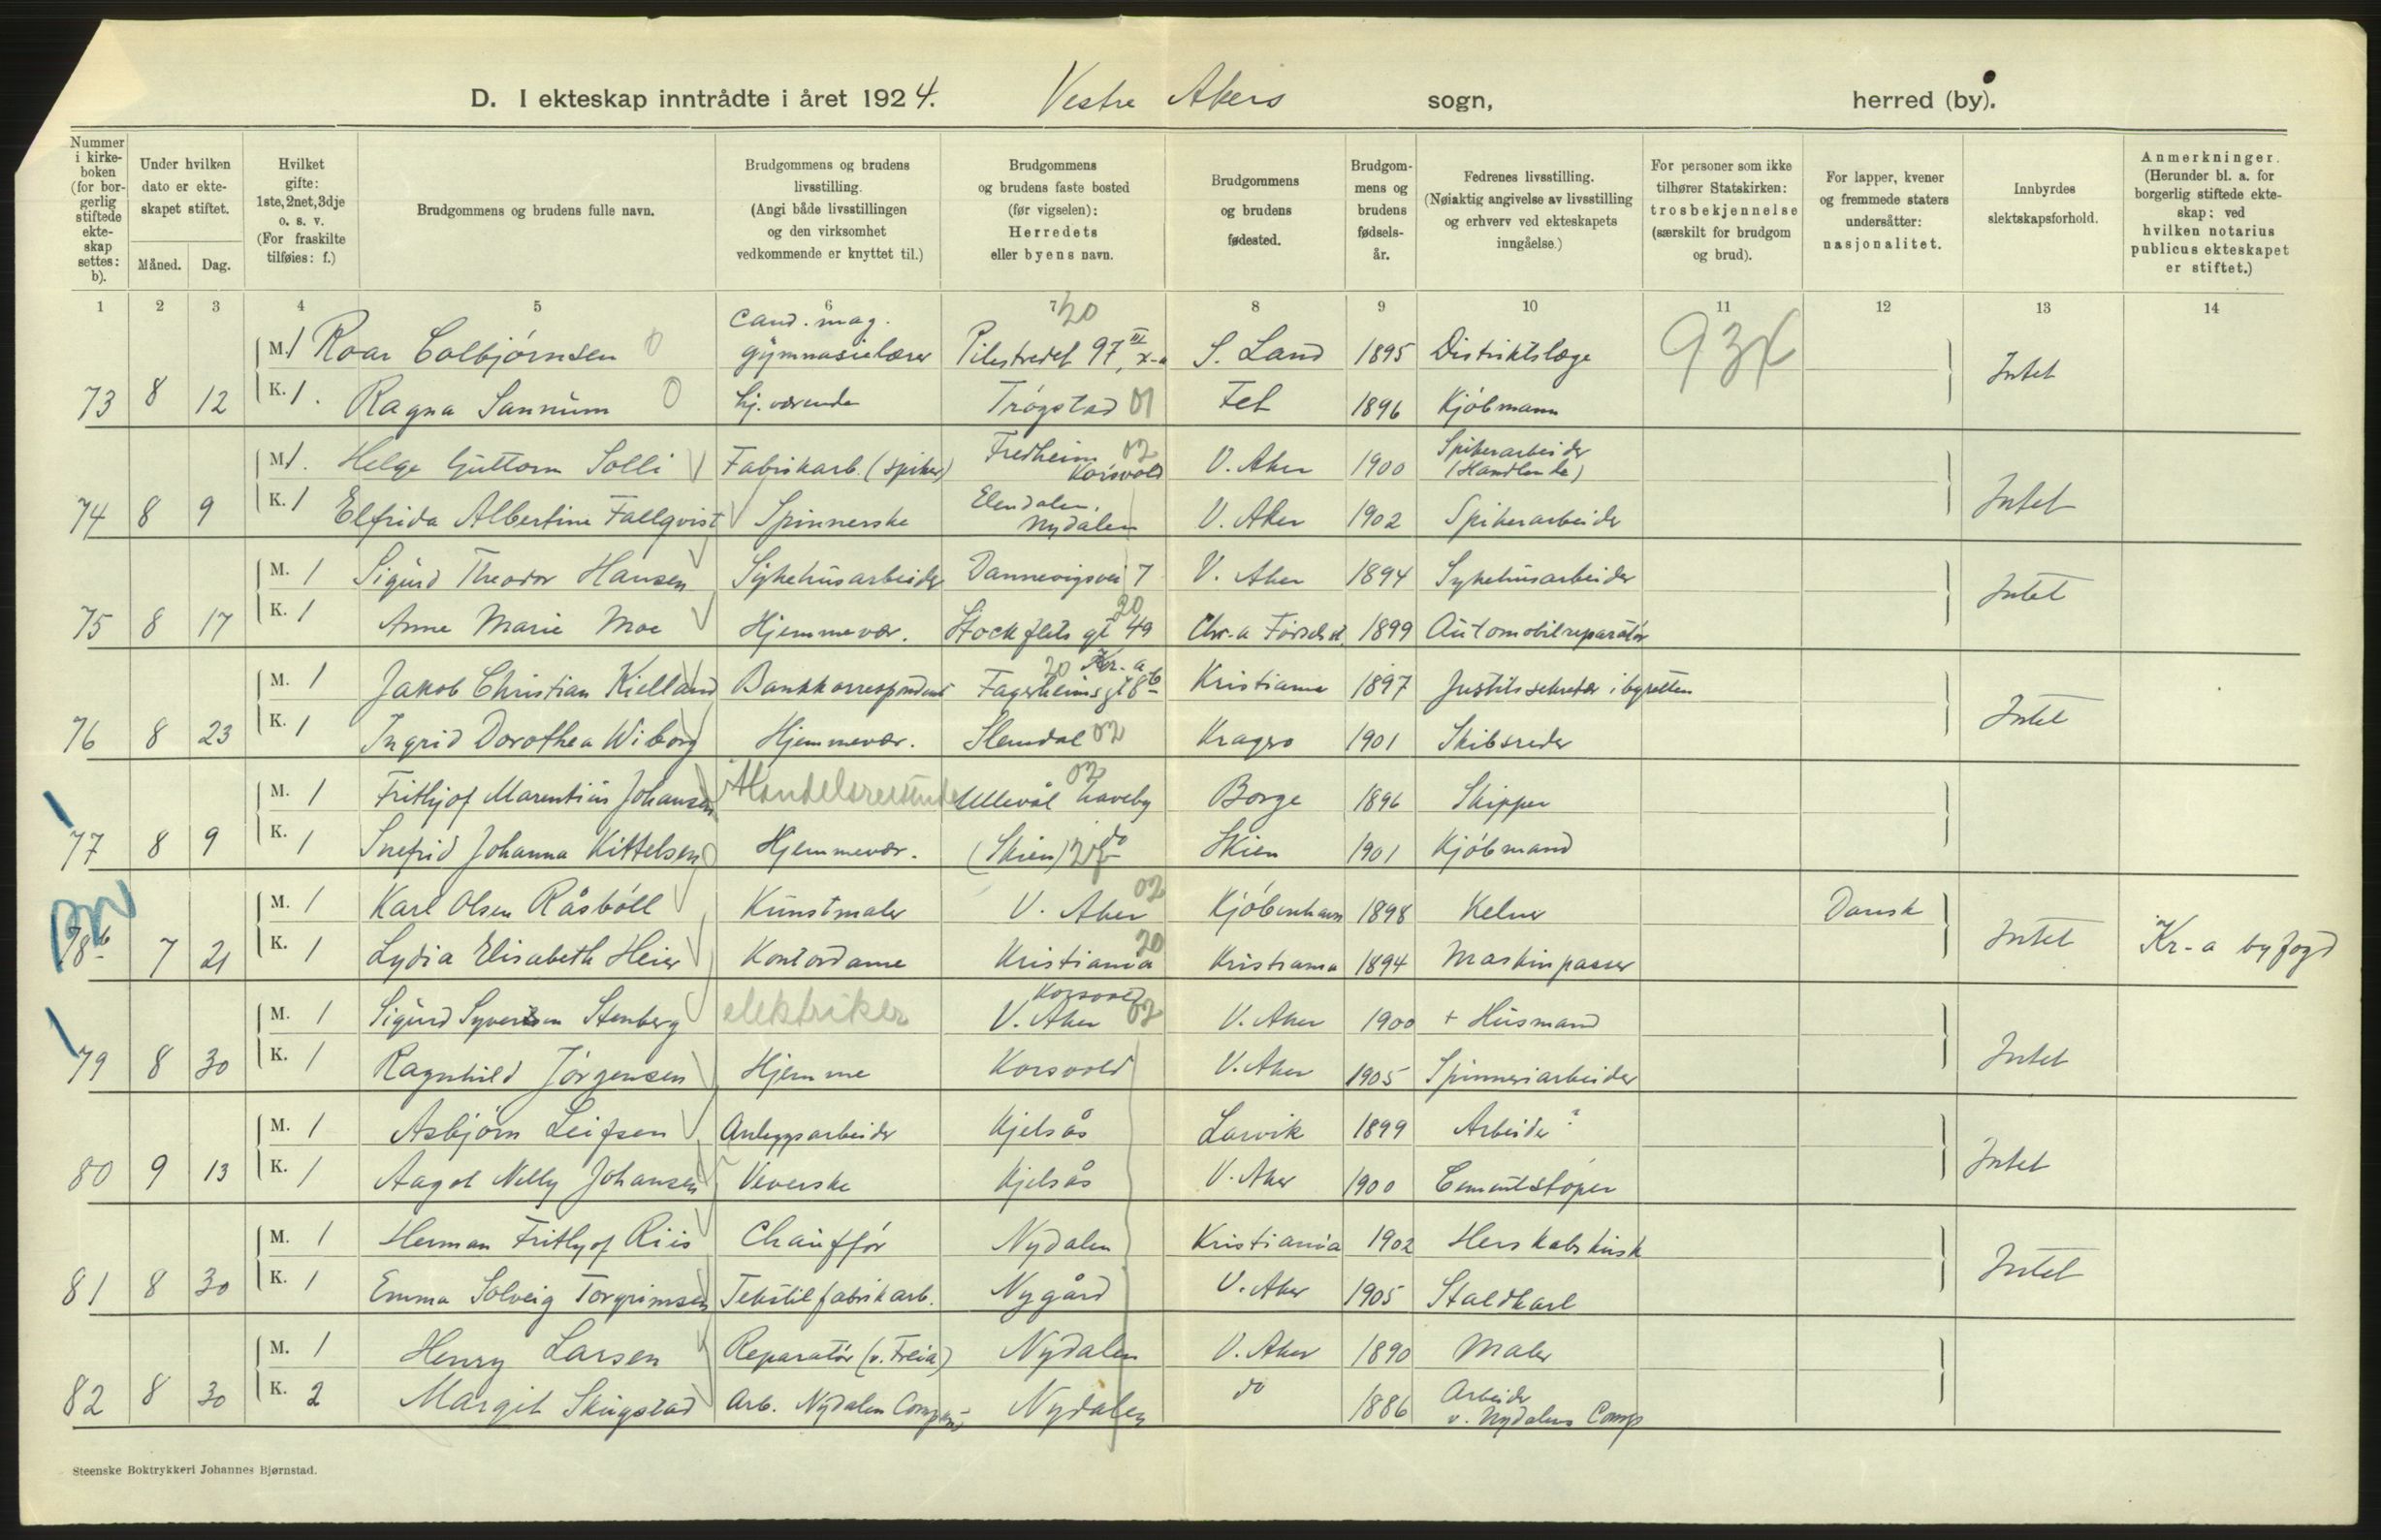 D. I ekteskap inntrådte i året 1924. Vestre Akers sogn, herred (by).
Nummer i kirke-boken (for bor-gerlig stiftede ekte-skap settes: b).
Under hvilken dato er ekte-skapet stiftet.
Måned. Dag.
Hvilket gifte: 1ste, 2net, 3dje o. s. v. (For fraskilte tilføies: f.)
Brudgommens og brudens fulle navn.
Brudgommens og brudens livsstilling. (Angi både livsstillingen og den virksomhet vedkommende er knyttet til.)
Brudgommens og brudens faste bosted (før vigselen): Herredets eller byens navn.
Brudgommens og brudens fødested.
Brudgom-mens og brudens fødsels-år.
Fedrenes livsstilling. (Nøiaktig angivelse av livsstilling og erhverv ved ekteskapets inngåelse.)
For personer som ikke tilhører Statskirken: trosbekjennelse (særskilt for brudgom og brud).
For lapper, kvener og fremmede staters undersåtter: nasjonalitet.
Innbyrdes slektskapsforhold.
Anmerkninger. (Herunder bl. a. for borgerlig stiftede ekte-skap: ved hvilken notarius publicus ekteskapet er stiftet.)
1 2 3 4 5 6 7 8 9 10 11 12 13 14
20
Cand. mag.
M. 1 Roar Colbjørnsen 0 gymnasielærer Pilestredet 97 III, x-a S. Land 1895 Distriktslæge 93x Intet
73 8 12 K. 1. Ragna Sannum 0 hj. værende Trøgstad 01 Fet 1896 Kjøbmann
M. 1. Helge Guttorm Solli Fabrikarb. (spiker) Fredheim Korsvold 02 V. Aker 1900 Spikerarbeider (Handlende)
74 8 9 K. 1 Elfrida Albertine Fallqvist Spinnerske Elendalen, Nydalen V. Aker 1902 Spikerarbeider Intet
M. 1 Sigurd Theodor Hansen Sykehusarbeider Dannevigsvei 7 V. Aker 1894 Sykehusarbeider Intet
75 8 17 K. 1 Anne Marie Moe Hjemmevær. Stockflets gt 49 20 Chr.a Fødselsst. 1899 Automobilreparatør
M. 1 Jakob Christian Kielland Bankkorrespondent Fagerheimsgt 8b 20 Kr.a Kristiania 1897 Justitssekretær i byretten
76 8 23 K. 1 Ingrid Dorothea Wiborg Hjemmevær. Slemdal 02 Kragerø 1901 Skibsreder Intet
M. 1 Frithjof Marentius Johansen Handelsreisende Ullevål haveby 02 Borge 1896 Skipper
77 8 9 K. 1 Snefrid Johanna Kittelsen Hjemmevær. (Skien) do Skien 1901 Kjøbmand
M. 1 Karl Olsen Råsbøll Kunstmaler V. Aker 02 Kjøbenhavn 1898 Kelner Dansk
78b 7 21 K. 1 Lydia Elisabeth Heier Kontordame Kristiania 20 Kristiania 1894 Maskinpasser Intet Kr-a byfogd
M. 1 Sigurd Syversen Stenberg elektriker Korsvold V. Aker 02 V. Aker 1900 + Husmand
79 8 30 K. 1 Ragnhild Jørgensen Hjemme Korsvold V. Aker 1905 Spinneriarbeider Intet
M. 1 Asbjørn Leifsen Anleggsarbeider Kjelsås Larvik 1899 Arbeider ?
80 9 13 K. 1 Aagot Nelly Johansen Veverske Kjelsås V. Aker 1900 Cementstøper Intet
M. 1 Herman Frithjof Riis Chauffør Nydalen Kristiania 1902 Herskabskusk
81 8 30 K. 1 Emma Solveig Torgrimsen Tekstilfabrikarb. Nygård V. Aker 1905 Staldkarl Intet
M. 1 Henry Larsen Reparatør (v. Freia) Nydalen V. Aker 1890 Maler
82 8 30 K. 2 Margit Skugstad Arb. Nydalen Compani Nydalen do 1886 Arbeider v. Nydalens Comp
Steenske Boktrykkeri Johannes Bjørnstad.